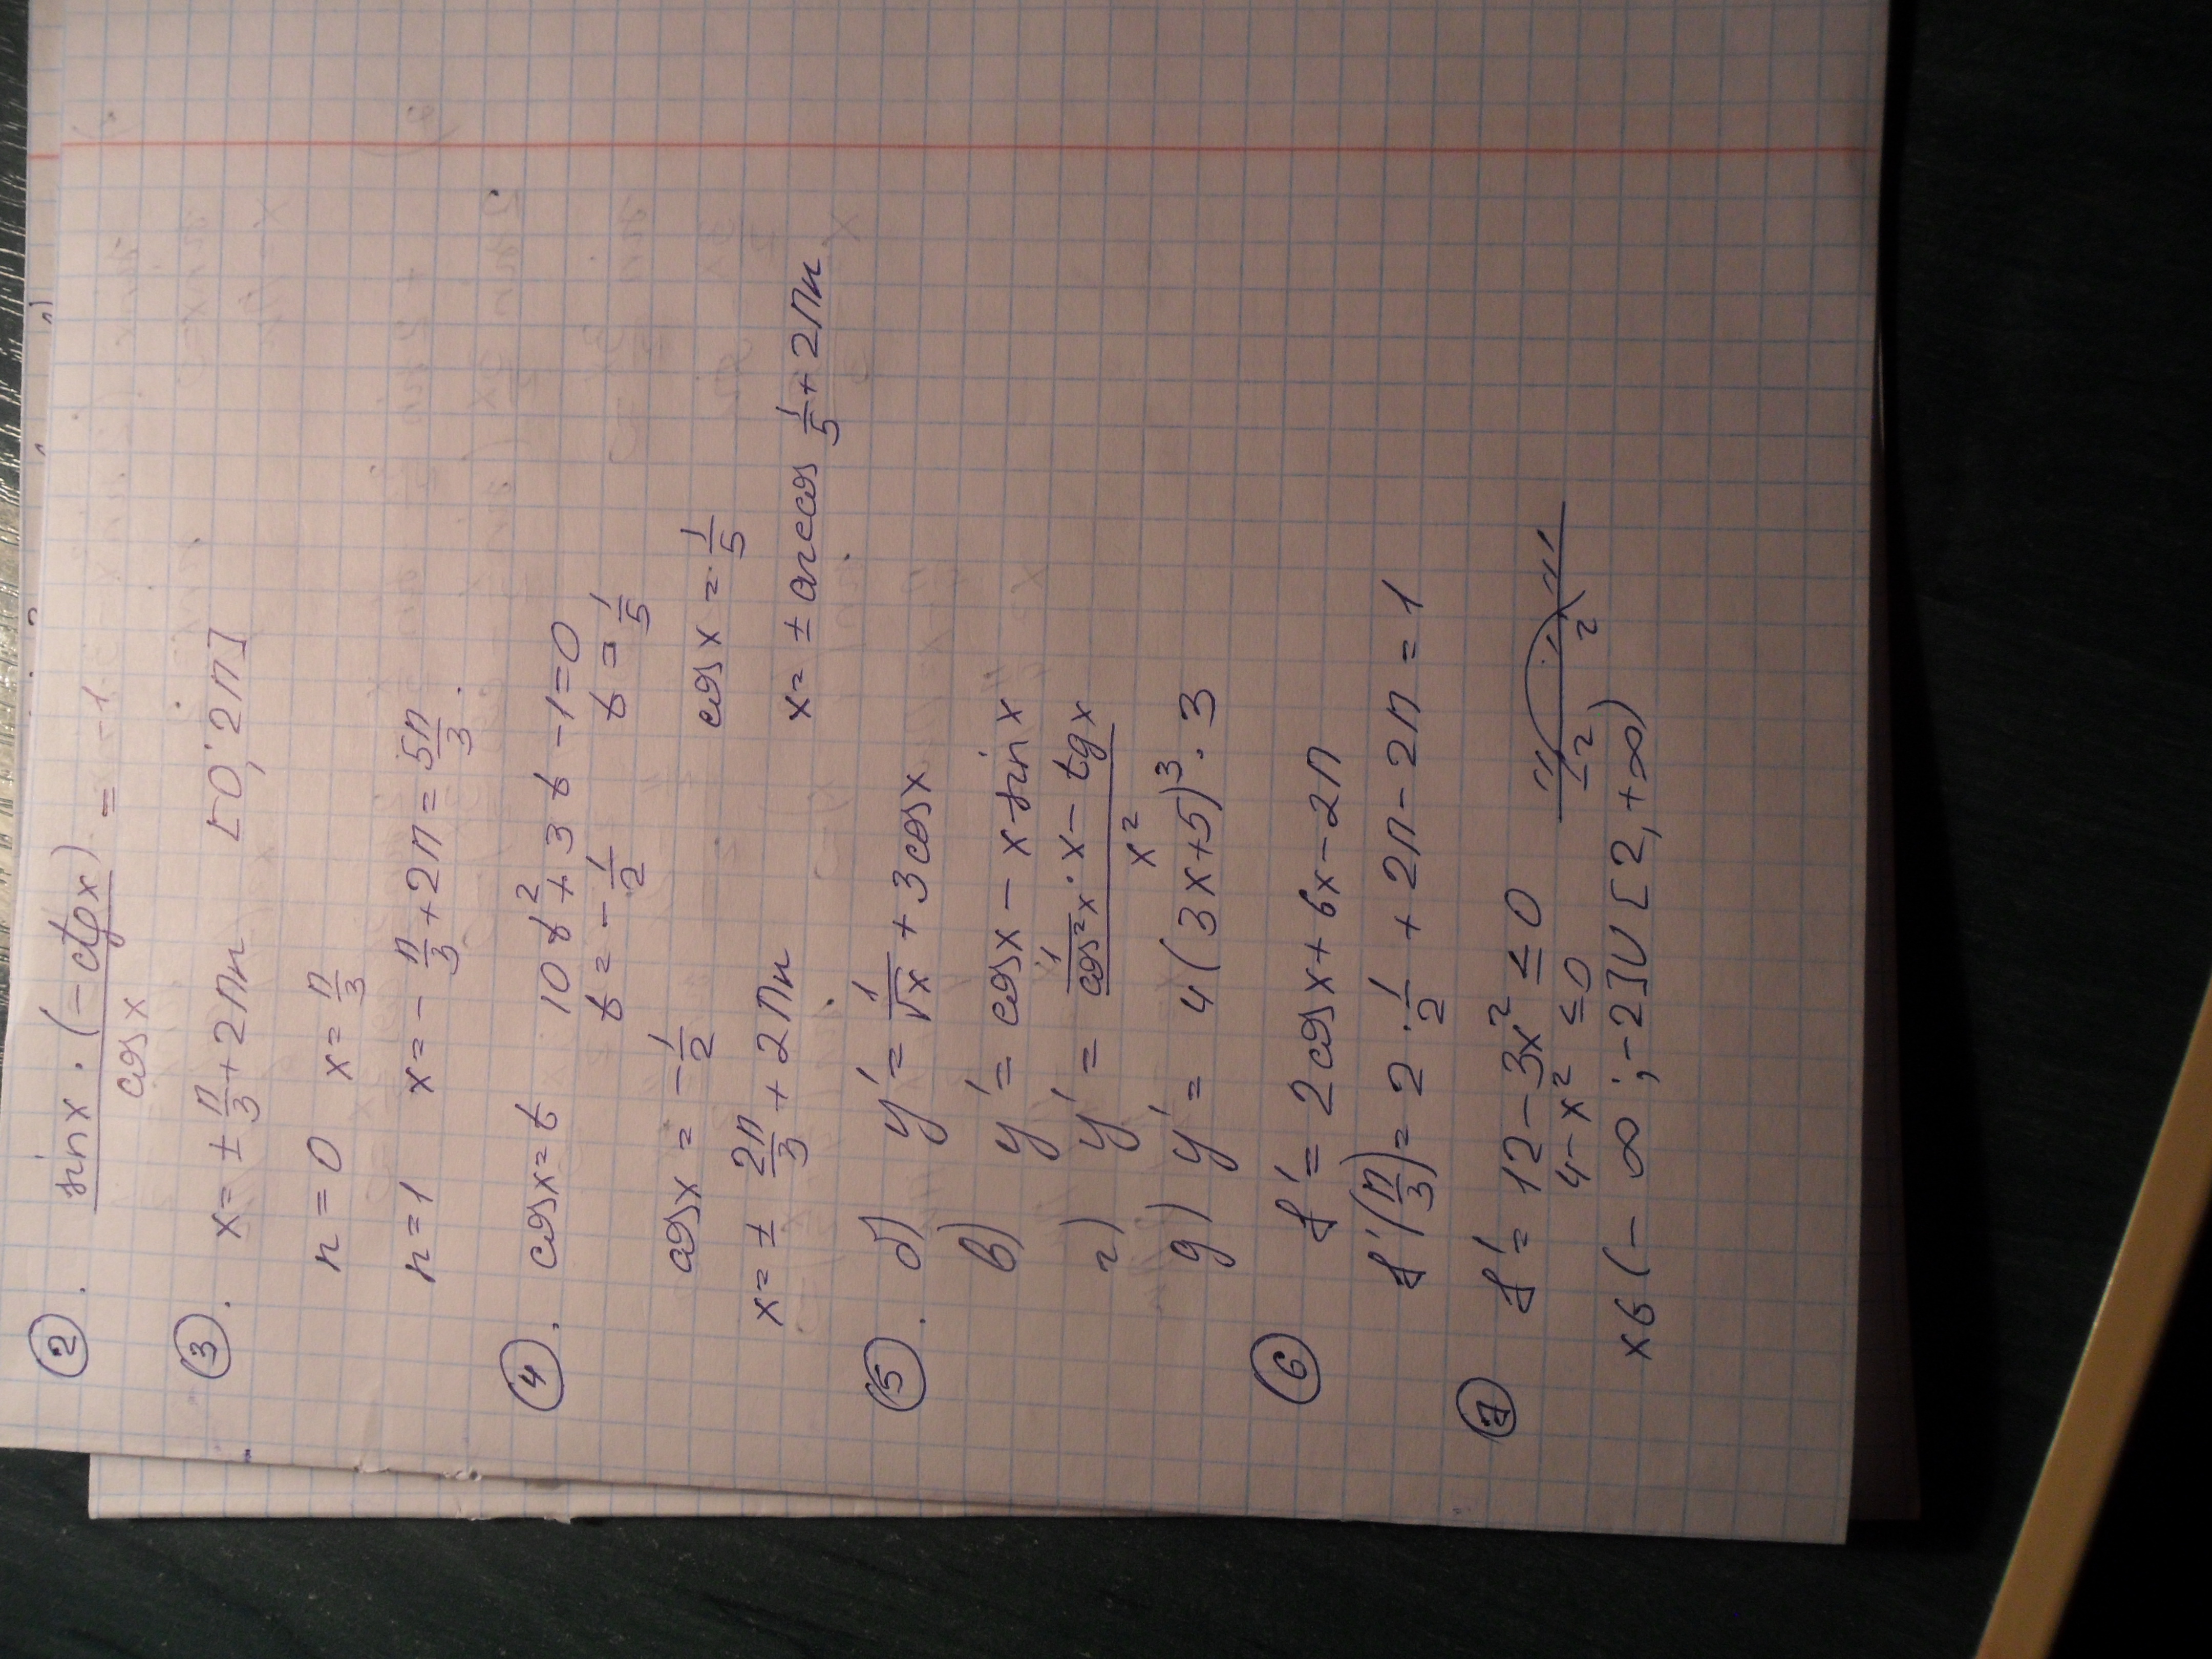 ② . sinx · (−ctgx) / cosx = −1
③ . x = ± π/3 + 2πn [0; 2π]
n = 0 x = π/3
n = 1 x = − π/3 + 2π = 5π/3 .
④ . cosx = t 10t² + 3t − 1 = 0
t = − 1/2 t = 1/5
cosx = − 1/2 cosx = 1/5
x = ± 2π/3 + 2πn x = ± arccos 1/5 + 2πn
⑤ . б) y' = 1/√x + 3cosx
в) y' = cosx − x·sinx
г) y' = (1/cos²x · x − tgx) / x²
д) y' = 4(3x+5)³ · 3
⑥ f' = 2cosx + 6x − 2π
f'(π/3) = 2 · 1/2 + 2π − 2π = 1
⑦ f' = 12 − 3x² ≤ 0
4 − x² ≤ 0 −2 2
x ∈ (− ∞; −2] ∪ [2, +∞)